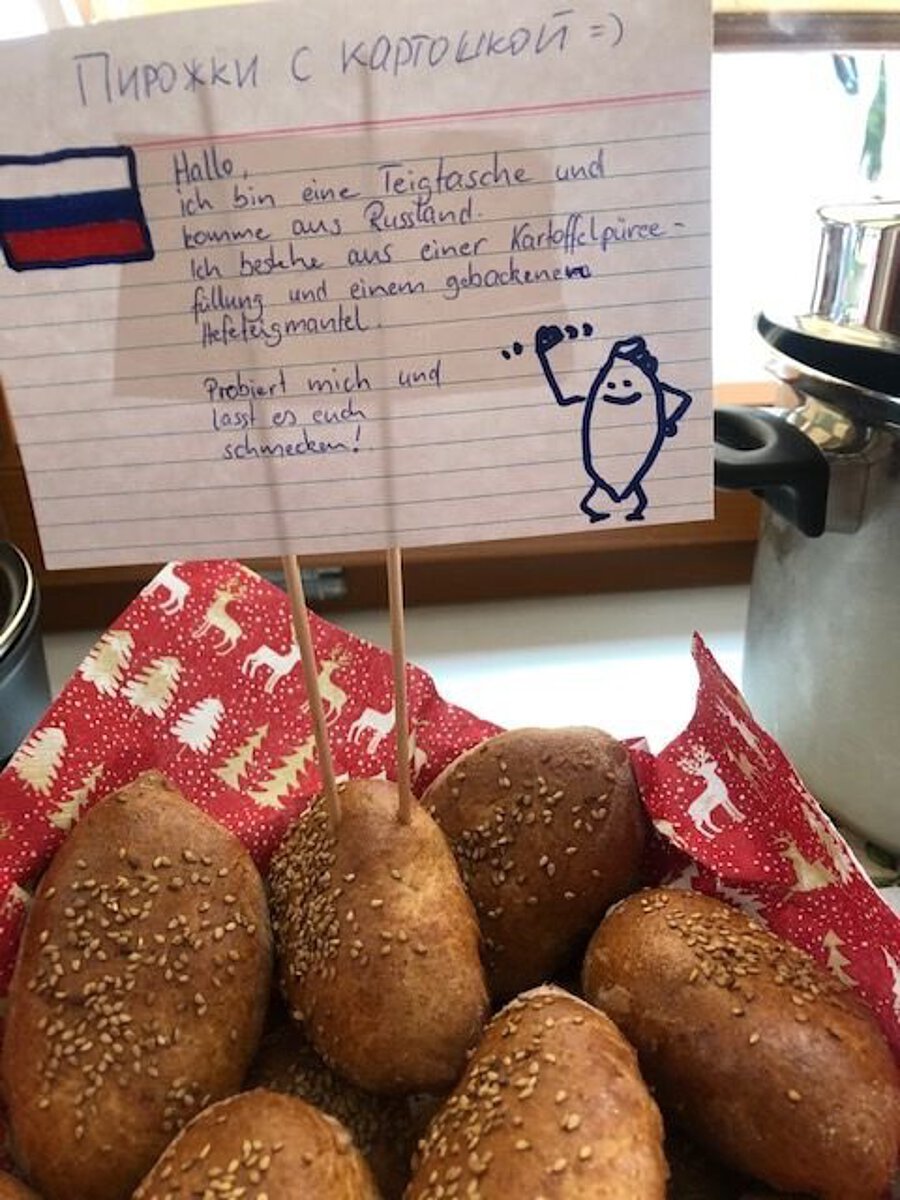 Пирожки с картошкой =)
Hallo,
ich bin eine Teigtasche und
komme aus Russland.
Ich bestehe aus einer Kartoffelpüree-
füllung und einem gebackenem
Hefeteigmantel.
Probiert mich und
lasst es euch
schmecken!